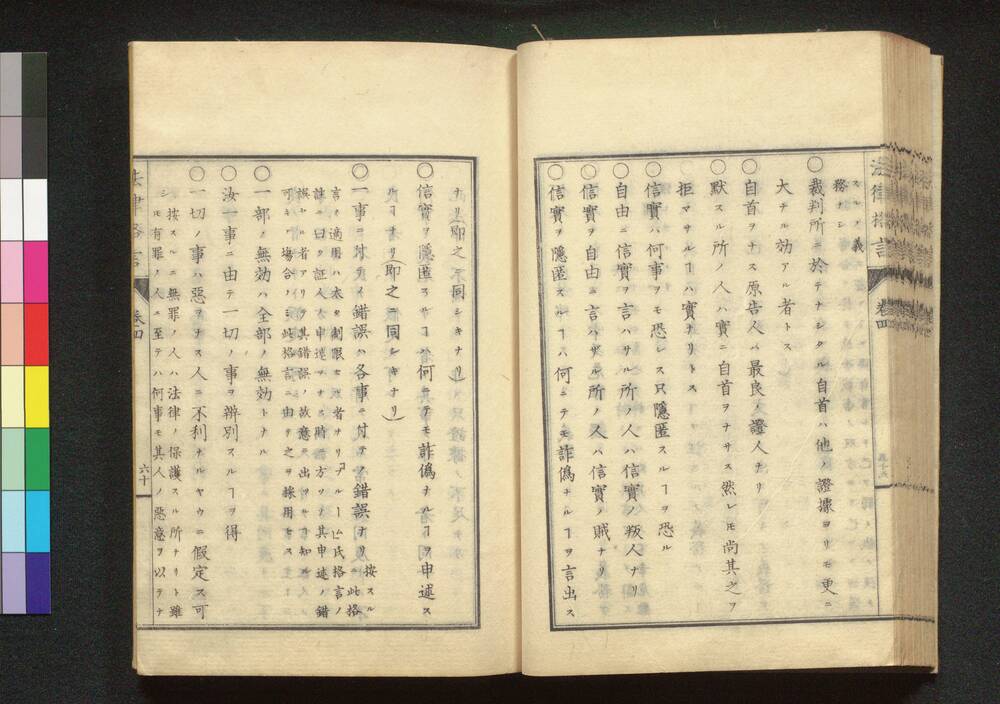 スルノ義
務ナシ
〇裁判所ニ於テナシタル自首ハ他ノ證據ヨリモ更ニ
大ナル効アル者トス
〇自首ヲナス原告人ハ最良ノ證人ナリ
〇默スル所ノ人ハ實ニ自首ヲナサス然レ𪜈尚其之ヲ
拒マサルヿハ實ナリトス
〇信實ハ何事ヲモ恐レス只隱匿スルヿヲ恐ル
〇自由ニ信實ヲ言ハサル所ノ人ハ信實ノ叛人ナリ
〇信實ヲ自由ニ言ハザル所ノ人ハ信實ノ賊ナリ
〇信實ヲ隱匿スルヿハ何ニテモ詐僞ナルヿヲ言出ス
法律格言
卷四
ナリ即之ニ同シキナリ)
〇信實ヲ隱匿スルヿハ何ニテモ詐僞ナルヿヲ申述ス
ルヿナリ(即之ニ同シキナリ)
〇一事ニ付テノ錯誤ハ各事ニ付テノ錯誤ナリ
按スル
ニ此格
言ノ適用ハ太タ制限セル者ナリブルーム氏格言ノ
註ニ曰ク証人ハ申述ヲナス時一方ツノ其申述ノ錯
誤セル者アリ其錯誤ノ故意ニ出ツヿヲ知ル
可キノ場合ノミ此格言ニ由リ之ヲ採用セス
〇一部ノ無効ハ全部ノ無効トナル
〇汝一事ニ由テ一切ノ事ヲ辨別スルヿヲ得
〇一切ノ事ハ惡ヲナス人ニ不利ナルヤウニ假定ス可
シ
按スルニ無罪ノ人ハ法律ノ保護スル所ナリト雖
モ有罪ノ人ニ至テハ何事モ其人ノ惡意ヲ以テナ
法律格言
卷四
六十